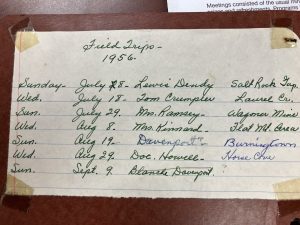 Meetings consisted of the usual min
Programs
Field Trips -
1956 -
Sunday - July 8 - Lewis Dendy Salt Rock Gap.
Wed. July 18 - Tom Crumpler Laurel Cr.
Sun. July 29 - Mrs. Ramsey - Wagner Mine
Wed. Aug 8 - Mrs. Kinnard - Flat Mt. Area
Sun. Aug 19 - Davenport Burningtown
Wed. Aug 29 - Doc. Howell - Horse Cove
Sun. Sept. 9 - Blanche Davenport - "